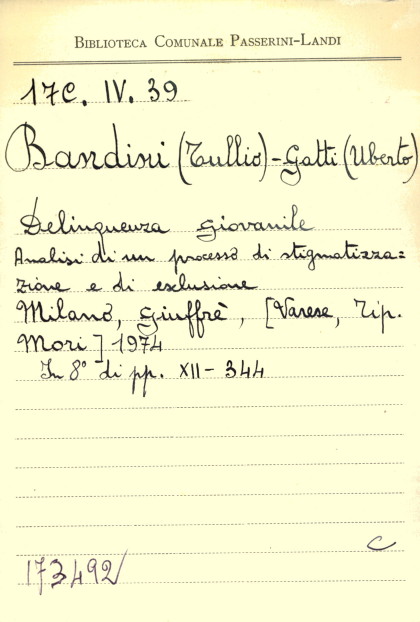 BIBLIOTECA COMUNALE PASSERINI-LANDI
17C. IV. 39
Bandini (Tullio) - Gatti (Uberto)
Delinquenza giovanile
Analisi di un processo di stigmatizza=
zione e di esclusione
Milano, Giuffrè, [Varese, Tip.
Mori] 1974
In 8° di pp. XII - 344
C
173492